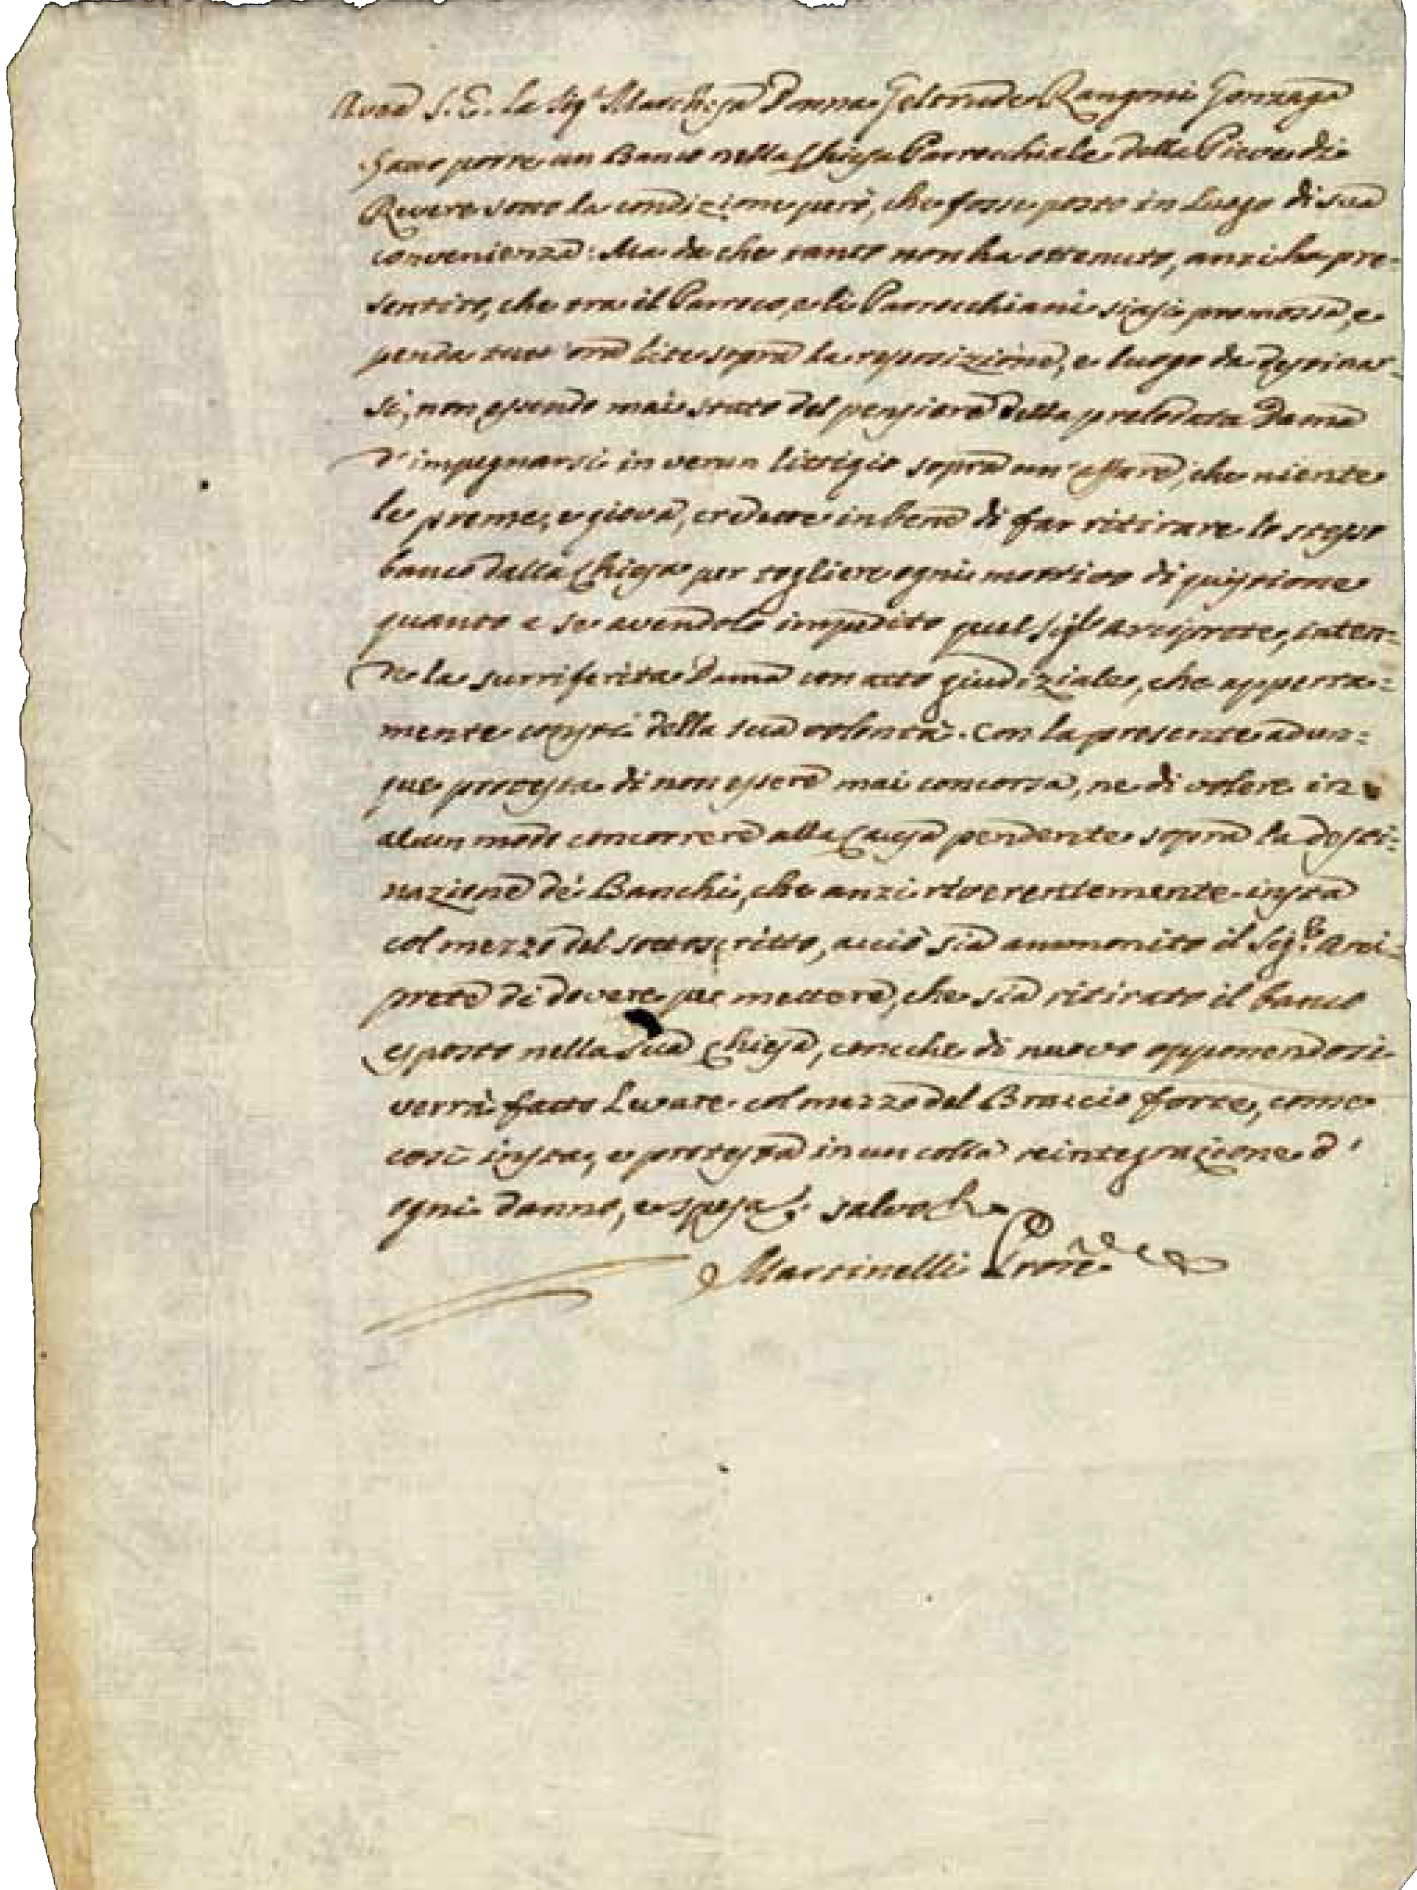 Avea S. E. la Sig.ª Marchesa Donna Geltrude Rangoni Gonzaga
fatto porre un Banco nella Chiesa Parrocchiale della Pieve di
Revere sotto la condizione però, che fosse posto in Luogo di sua
convenienza: Ma da che tanto non ha ottenuto, anzi ha pre-
sentito, che tra il Parroco, e li Parrocchiani siasi promossa, e
penda tutt'ora lite sopra la reposizione, e luogo da destinar-
si, non essendo mai stato del pensiare della prelodata Dama
d'impegnarsi in verun littigio sopra un'affare, che niente
le preme, e giova, credette in bene di far ritirare lo stesso
banco dalla Chiesa per togliere ogni mottivo di quistione
quanto a se avendolo impedito quel Sig.r Arciprete, inten-
de la surriferita Dama con atto giudiziale, che apperta-
mente consti della sua volontà. Con la presente adun-
que protesta di non essere mai concorsa, ne di volere in
alcun modo concorrere alla Causa pendente sopra la desti-
nazione de' Banchi, che anzi riverentemente insta
col mezzo del sottoscritto, acciò sia ammonito il Sig.r Arci-
prete di dovere per mettere, che sia ritirato il banco
esposto nella sua Chiesa, che di nuovo opponendosi
verrà fatto Levare col mezzo del Braccio forte, come
così insta, e protesta in un colla reintegrazione d'
ogni danno, e spesa salvo
Martinelli Prore